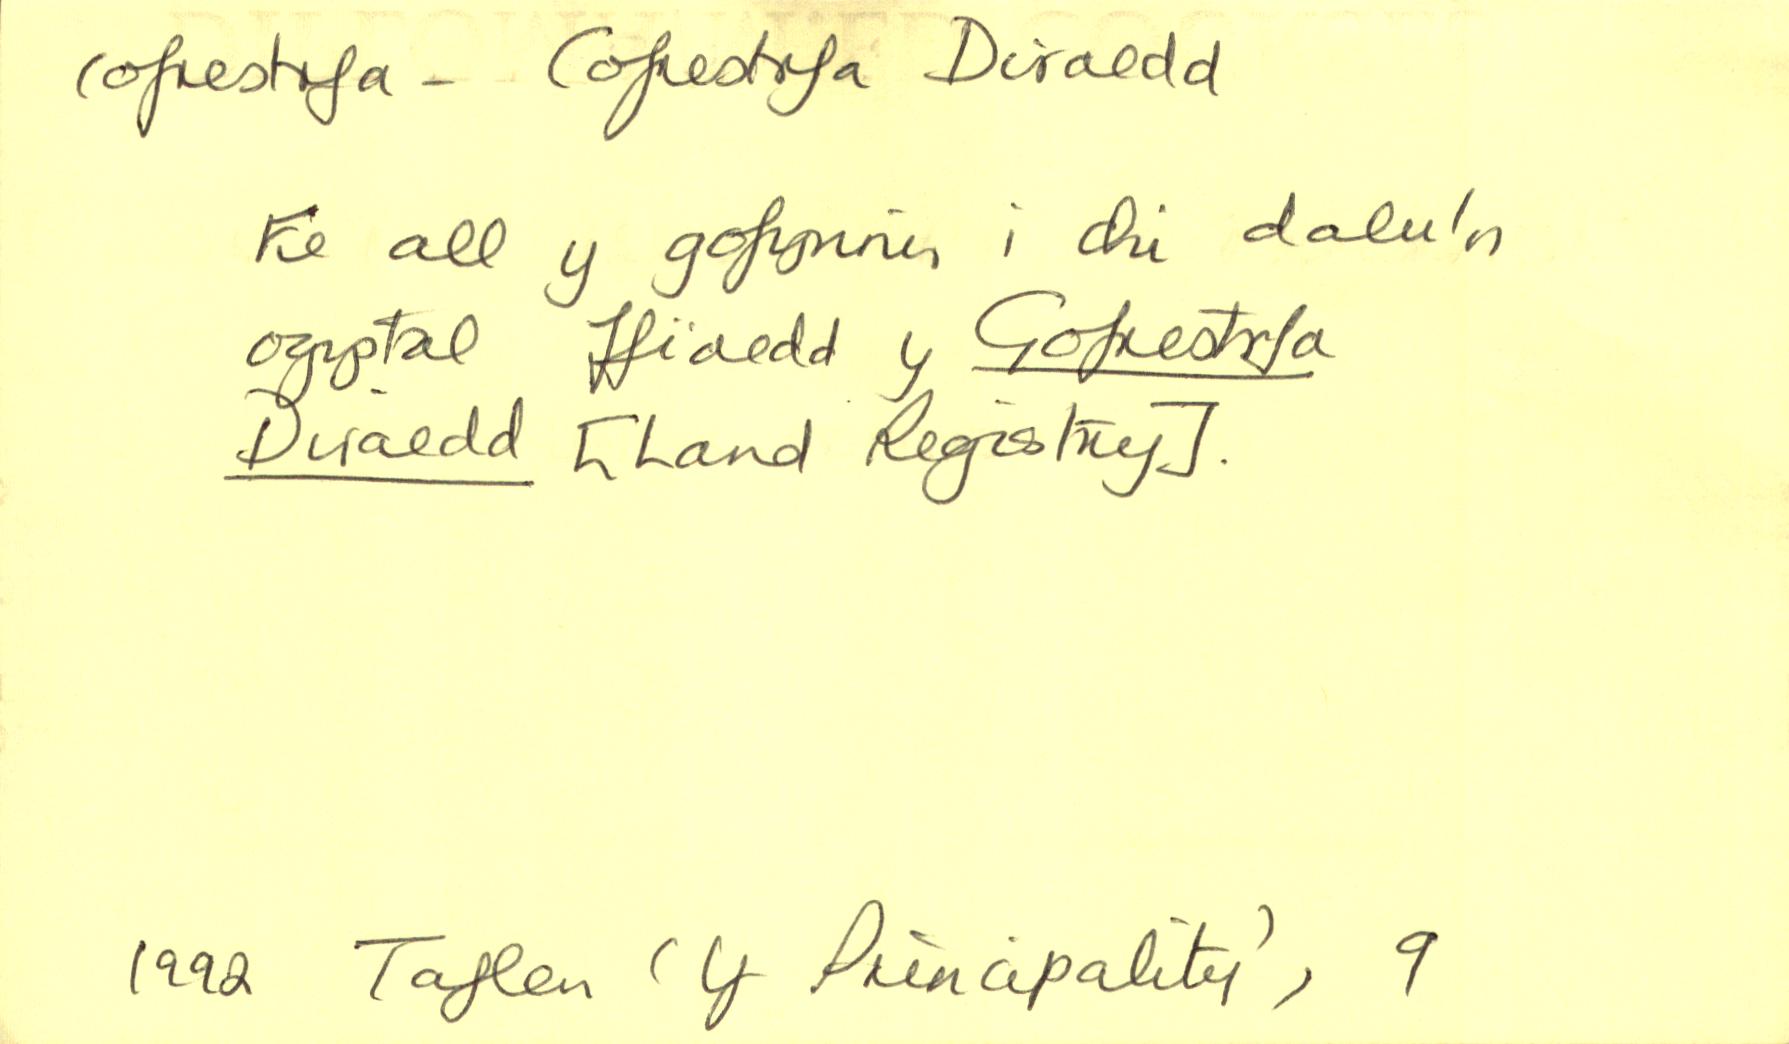 cofrestrfa - Cofrestrfa Diroedd
Fe all y gofynnir i chi dalu'n
ogystal ffioedd y Gofrestrfa
Diroedd [Land Registry].
1992 Taflen 'Y Principality', 9